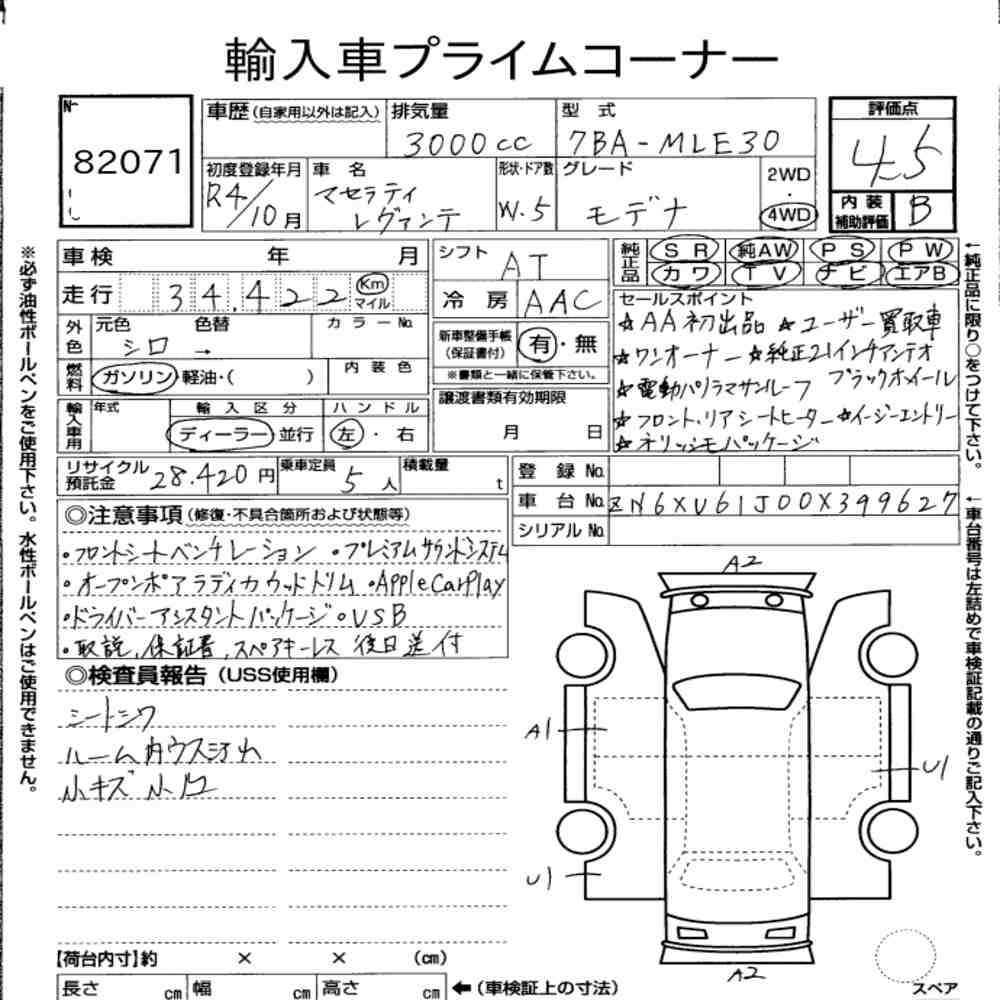 輸入車プライムコーナー
№ 82071
車歴 (自家用以外は記入) 排気量 3000cc 型式 7BA-MLE30
評価点 4.5
初度登録年月 R4/10月 車名 マセラティ レヴァンテ 形状・ドア数 W.5 グレード モデナ 2WD・4WD
内装補助評価 B
車検 年 月
走行 34,422 Km マイル
シフト AT
冷房 AAC
純正品 SR 純AW PS PW
カワ TV ナビ エアB
外色 元色 シロ 色替 → カラーNo.
燃料 ガソリン・軽油・( ) 内装色
新車整備手帳(保証書付) 有・無
※書類と一緒に保管下さい。
セールスポイント
☆AA初出品 ☆ユーザー買取車
☆ワンオーナー ☆純正21インチアンテオ
ブラックホイール
☆電動パノラマサンルーフ
☆フロント・リアシートヒーター ☆イージーエントリー
☆ネリッシモパッケージ
輸入車用 年式 輸入区分 ディーラー・並行 ハンドル 左・右
譲渡書類有効期限 月 日
リサイクル預託金 28,420円 乗車定員 5人 積載量 t
登録No.
車台No. ZN6XU61J00X399627
シリアルNo.
◎注意事項 (修復・不具合箇所および状態等)
・フロントシートベンチレーション ・プレミアムサウンドシステム
・オープンポアラディカウッドトリム ・Apple CarPlay
・ドライバーアシスタントパッケージ ・USB
・取説、保証書、スペアキーレス 後日送付
◎検査員報告 (USS使用欄)
シートシワ
ルーム内ウス汚れ
小キズ 小凹
A2
A1
U1
U1
A2
スペア
【荷台内寸】約 × × (cm)
長さ cm 幅 cm 高さ cm ←(車検証上の寸法)
※必ず油性ボールペンをご使用下さい。水性ボールペンはご使用できません。
←純正品に限り○をつけて下さい。
←車台番号は左詰めで車検証記載の通りご記入下さい。